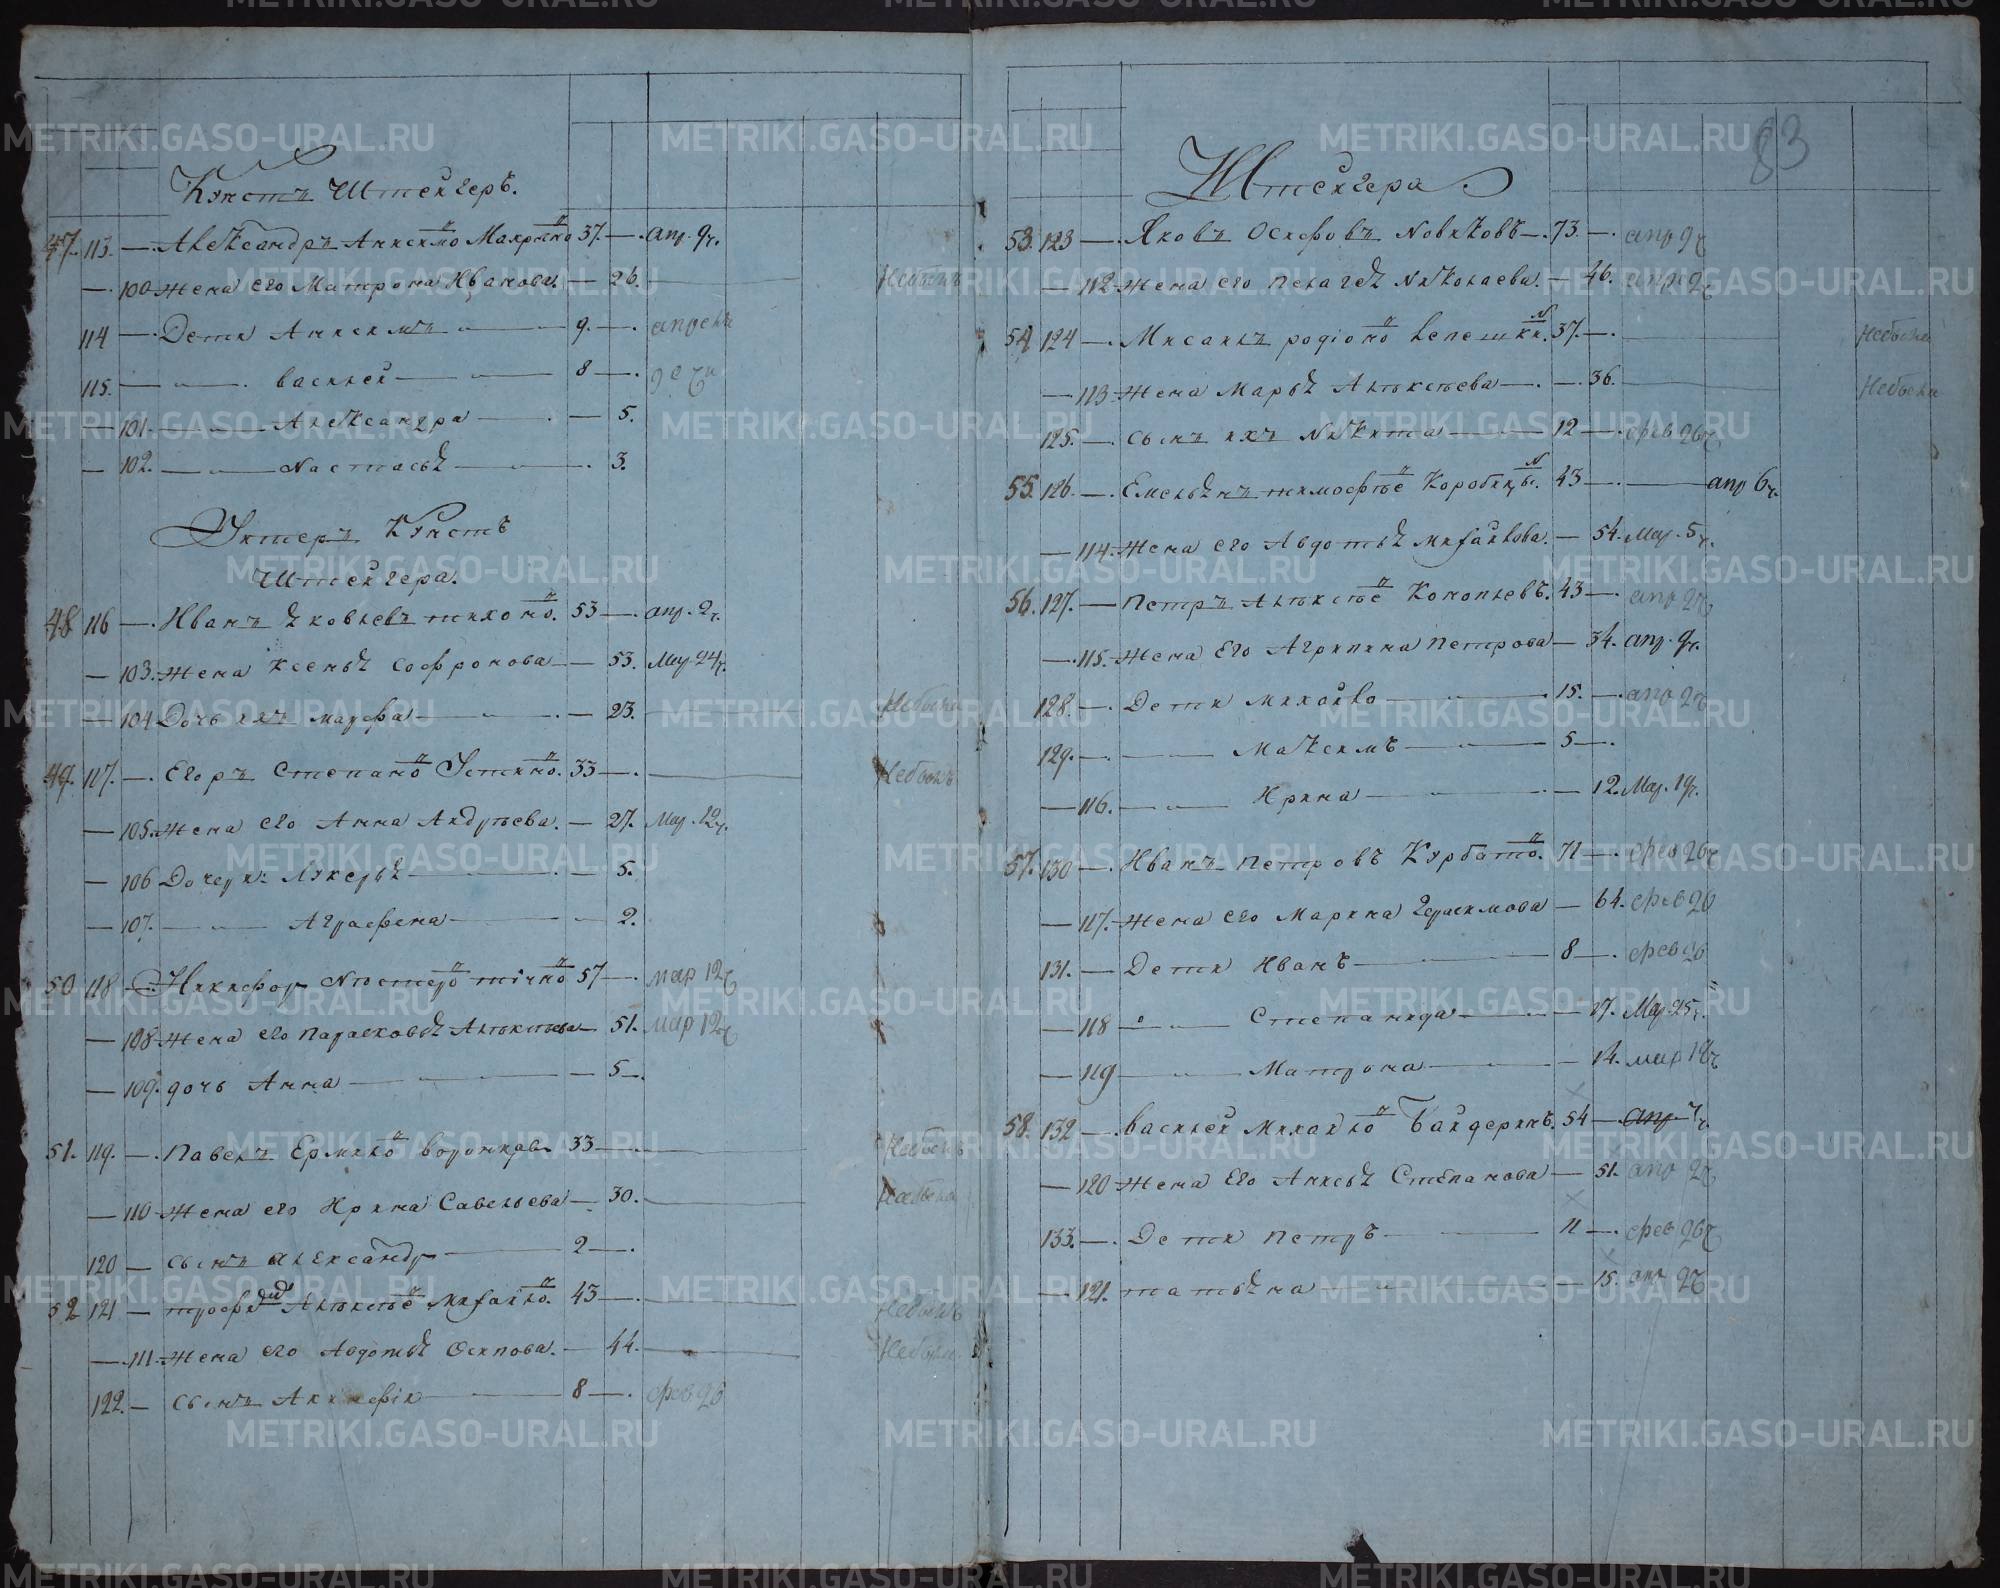 Кунстъ Штейгеръ.
47. 113. Александръ Анисимо Макрыно 37. апр. 9ч.
100 Жена его Матрона Иванова. 26. Небыла
114 Дети Анисимъ 9. апреля
115. Василей 8 9 ч
101. Александра 5.
102. Настасья 3.
Унтеръ Кунстъ
Штейгера.
48 116 Иванъ Яковлевъ Тихоно. 53 апр. 2ч.
103. Жена Ксенья Софронова 53. Мар. 24ч.
104 Дочь ихъ Марфа 23. Небыла
49. 117. Егоръ Степано Устино. 33 Небылъ
105. Жена его Анна Андреева. 27. Мар. 12ч.
106 Дочери: Лукерья 5.
107. Аграфена 2.
50 118 Никифор 57 мар 12ч
108 Жена его Парасковья Алексеева 51. мар 12ч
109. дочь Анна 5
51. 119. Павелъ Ермило 33 Небылъ
110 Жена его Ирина Савельева 30. Небыла
120 Сынъ Александр 2
52 121 Алексее Михайло. 43 Небылъ
111. Жена его Авдотья Осипова. 44. Небыла
122. Сынъ 8 фев 26
83
Штейгера
53. 123 Яковъ Осиповъ Новиковъ 73 апр 9ч
112 Жена его Пелагея Николаева. 46. апр 2ч
54 124 Мисаилъ Родіоно 37. Небылъ
113 Жена Марья Алексеева 36. Небыла
125. Сынъ ихъ Никита 12 фев 26ч
55. 126. Емельянъ Тимофее Коробицы. 43 апр 6ч.
114. Жена его Авдотья Михайлова. 54. Мар. 5ч.
56. 127. Петръ Алексее Коноплевъ. 43 апр 2ч
115. Жена его Агрипина Петрова 34. апр. 9ч.
128. Дети Михайло 15. апр 2ч
129. Максимъ 5
116. Ирина 12. Мар. 19ч.
57. 130 Иванъ Петровъ Курбато. 71 фев 26ч
117. Жена его Марина Герасимова 64. фев 26
131. Дети Иванъ 8 фев 26
118 Степанида 17. Мар. 25ч.
119 Матрона 14. мар 18ч
58. 132 Василей Михайло Байдеринъ. 54 апр 4ч
120 Жена его Анисья Степанова 51. апр 2ч
133. Дети Петръ 11 фев 26ч
121. Татьяна 15. апр 2ч